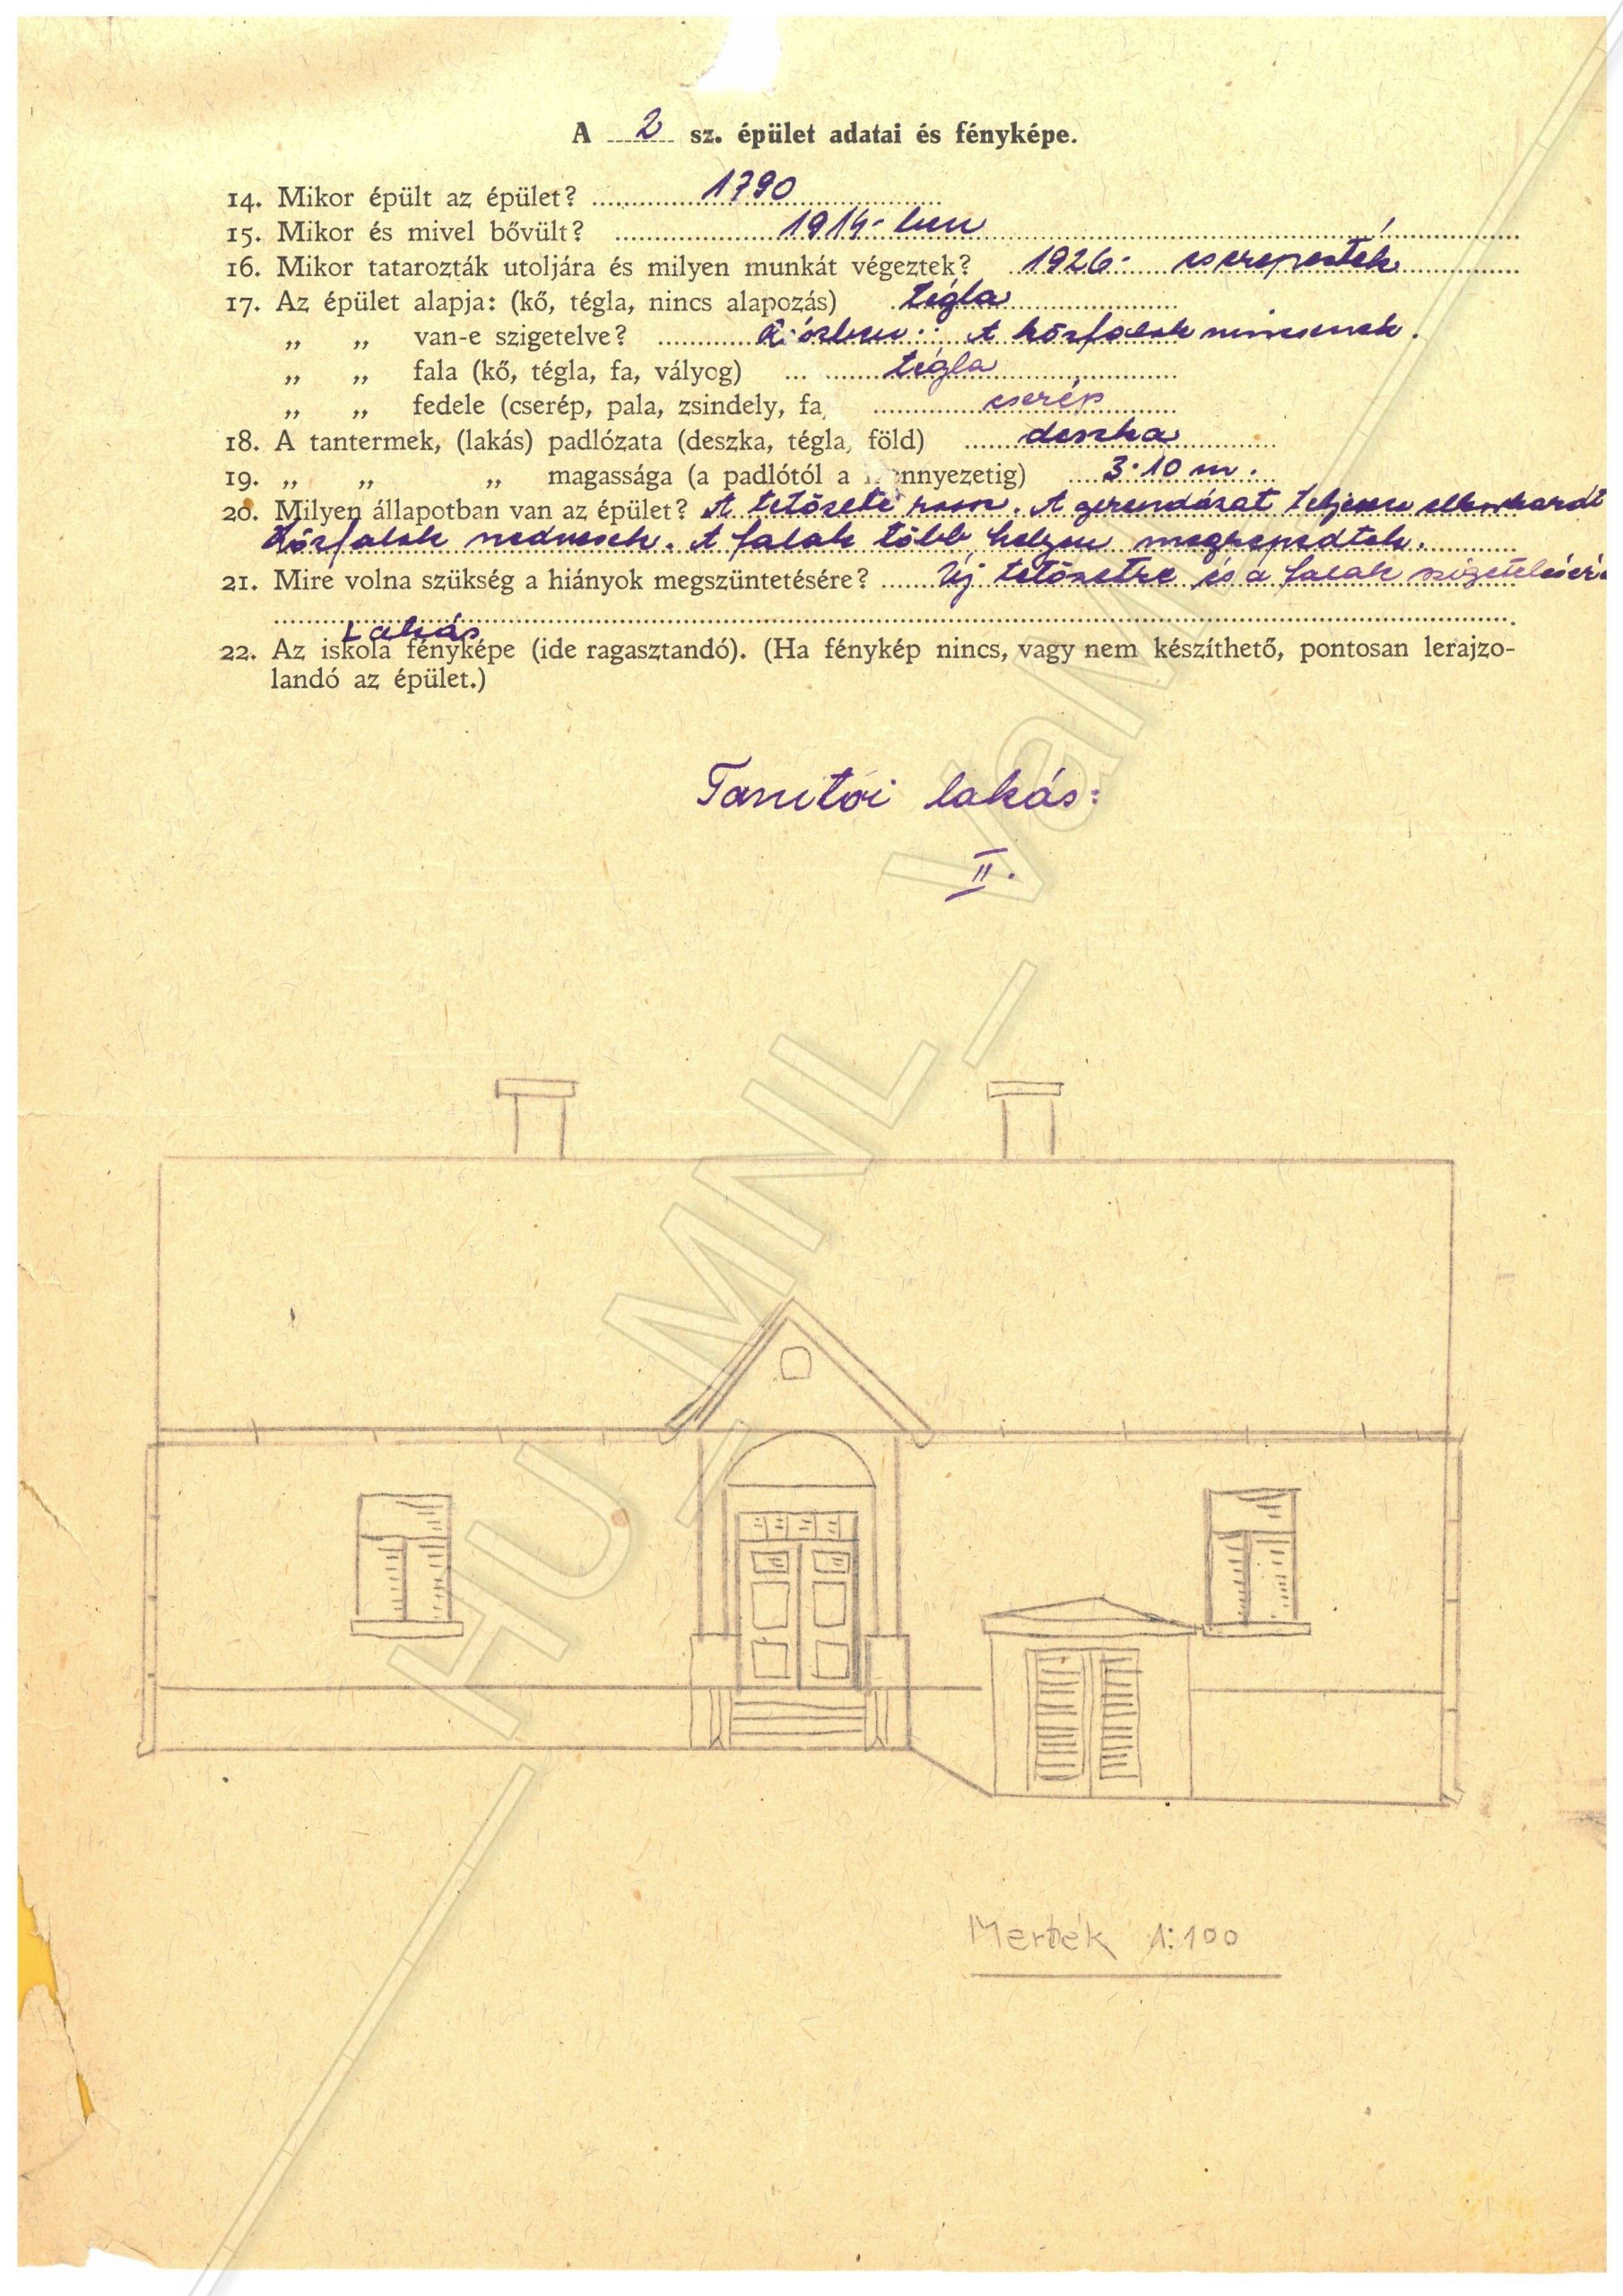 A 2 sz. épület adatai és fényképe.
14. Mikor épült az épület? 1790
15. Mikor és mivel bővült? 1914-ben
16. Mikor tatarozták utoljára és milyen munkát végeztek? 1926. cserepezték
17. Az épület alapja: (kő, tégla, nincs alapozás) tégla
„ „ van-e szigetelve? A körfalak nincsenek.
„ „ fala (kő, tégla, fa, vályog) tégla
„ „ fedele (cserép, pala, zsindely, fa, cserép
18. A tantermek, (lakás) padlózata (deszka, tégla, föld) deszka
19. „ „ „ magassága (a padlótól a mennyezetig) 3.10 m.
20. Milyen állapotban van az épület? A tetőzete rossz. A gerendázat teljesen elkorhadt
Körfalak nedvesek. A falak több helyen megrepedtek.
21. Mire volna szükség a hiányok megszüntetésére? Új tetőzetre és a falak szigetelésére
Lakás
22. Az iskola fényképe (ide ragasztandó). (Ha fénykép nincs, vagy nem készíthető, pontosan lerajzo-
landó az épület.)
Tanitói lakás:
II.
Mérték 1:100
HU_MNL_VaM